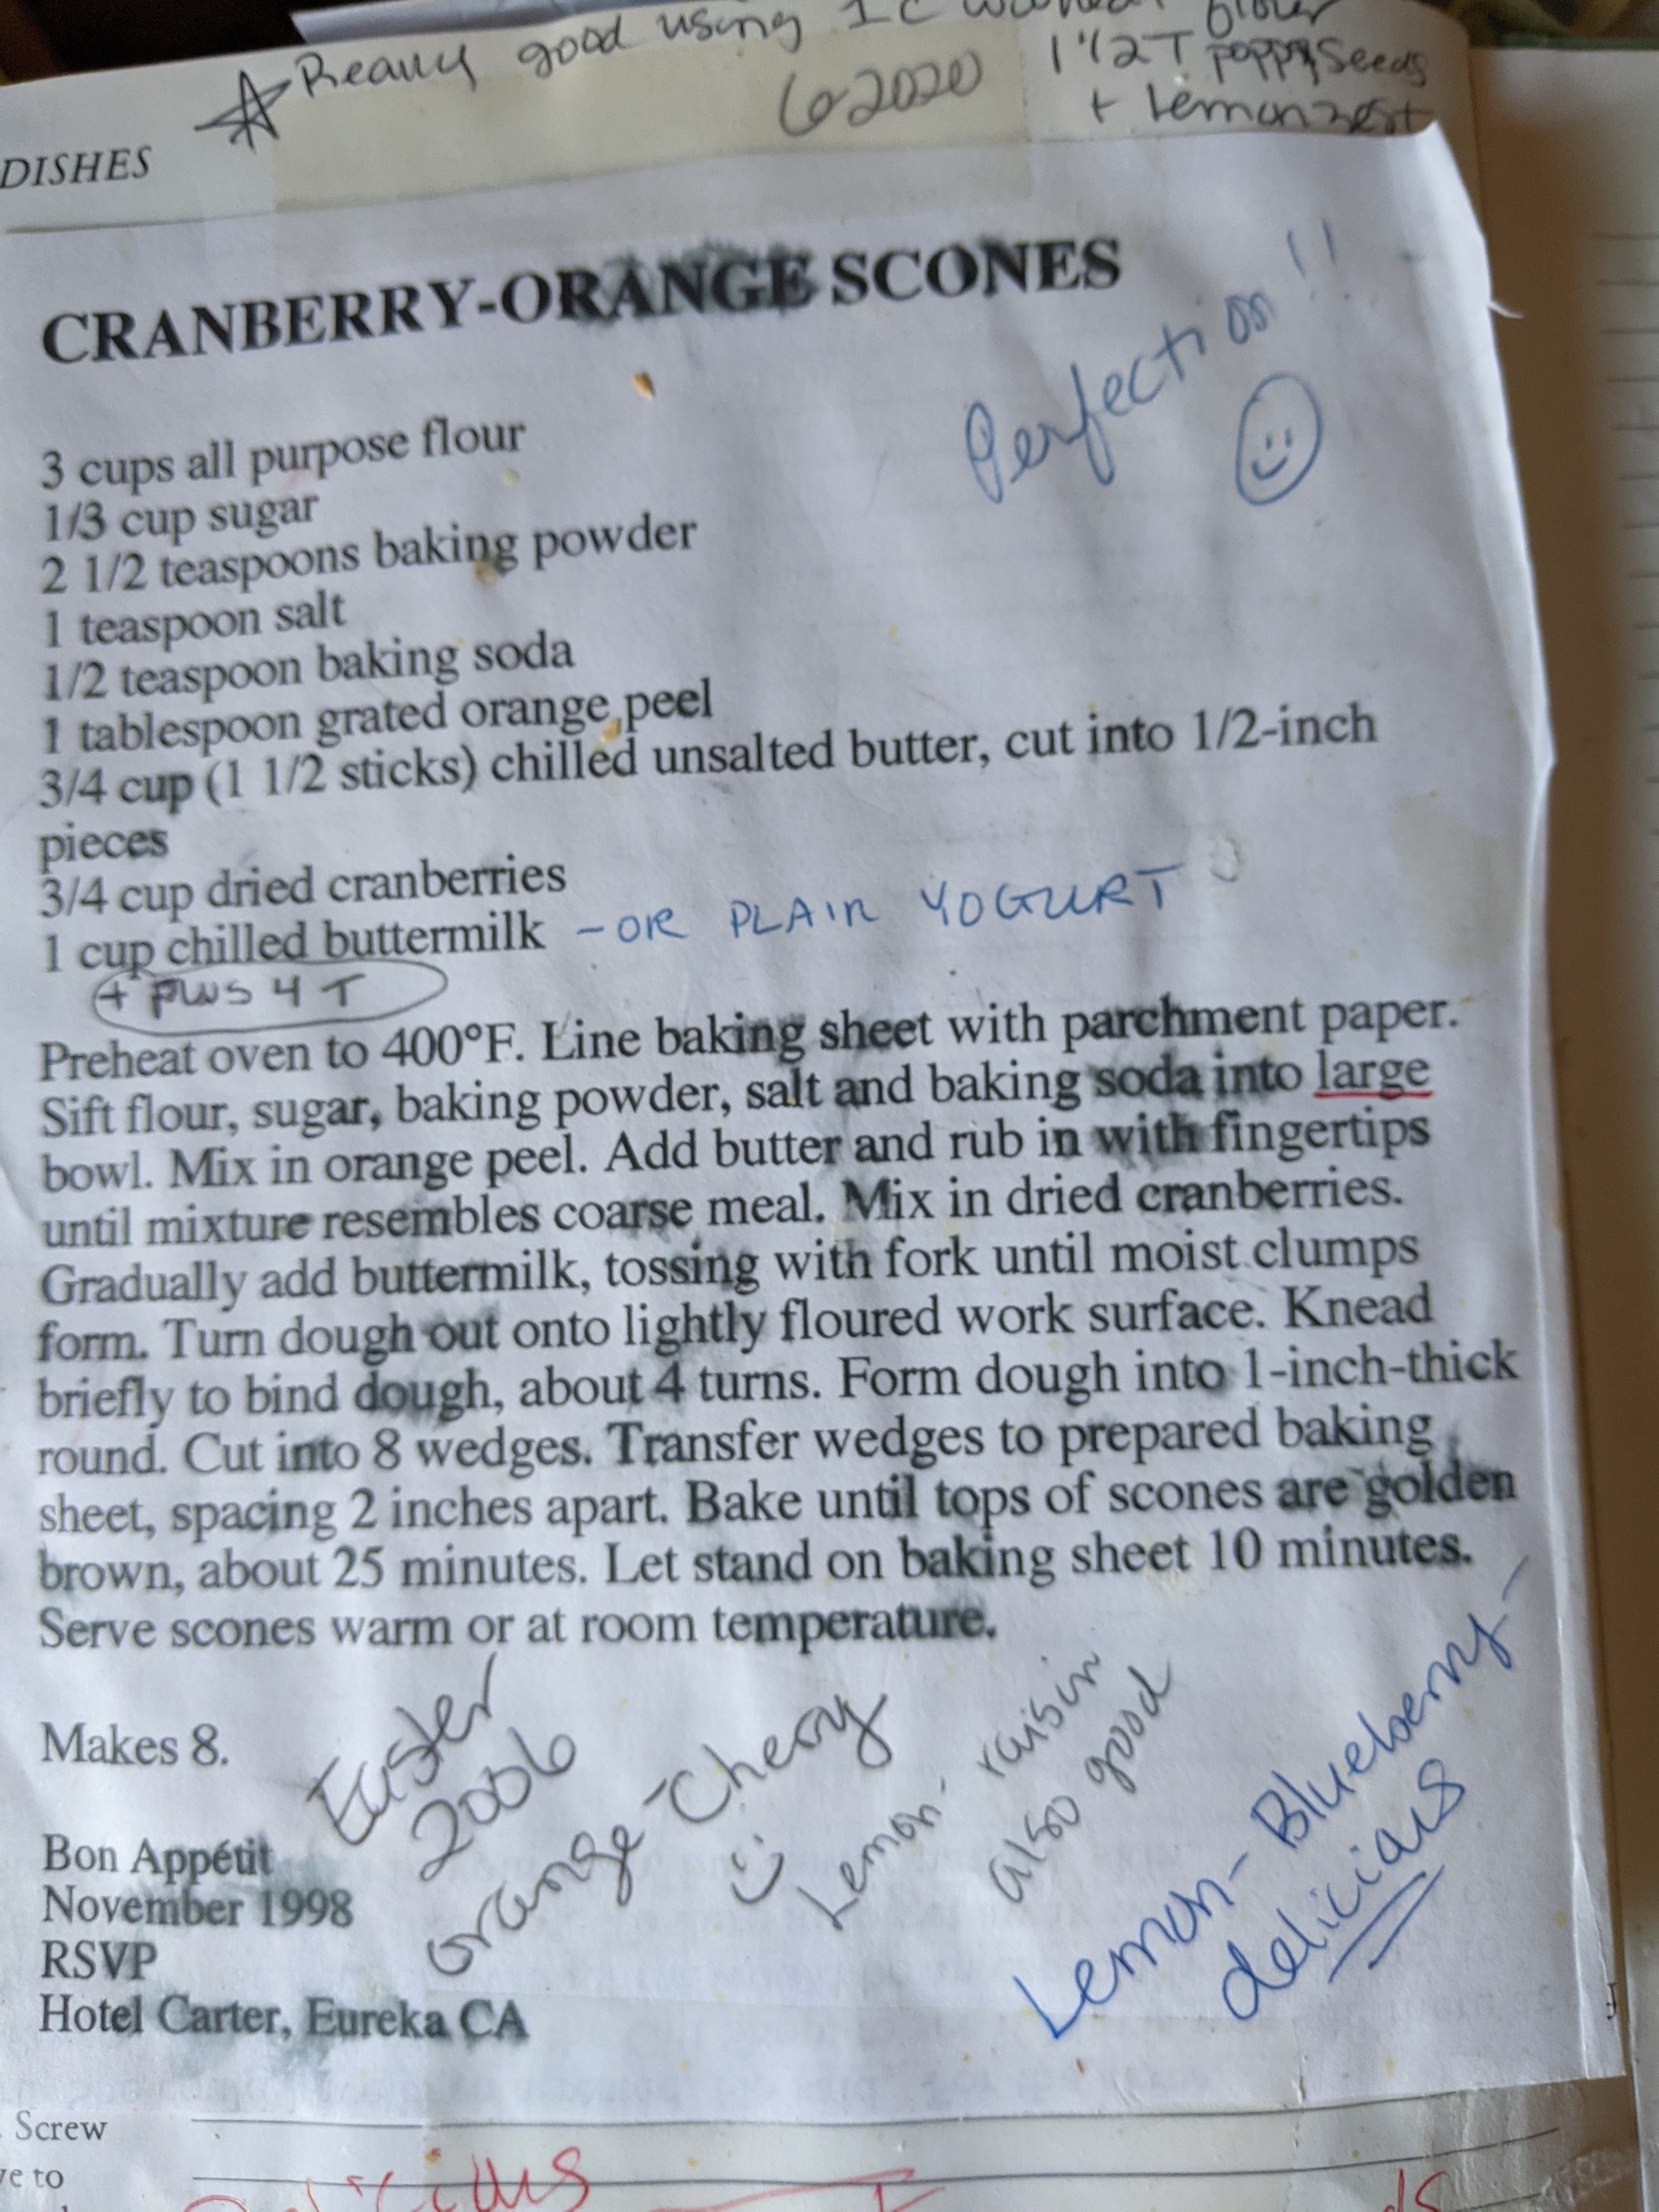 Really good using 1 C
6 2020
1 1/2 T poppy seeds
+ Lemon zest
DISHES
CRANBERRY-ORANGE SCONES
Perfection!!
3 cups all purpose flour
1/3 cup sugar
2 1/2 teaspoons baking powder
1 teaspoon salt
1/2 teaspoon baking soda
1 tablespoon grated orange peel
3/4 cup (1 1/2 sticks) chilled unsalted butter, cut into 1/2-inch
pieces
3/4 cup dried cranberries
1 cup chilled buttermilk - OR PLAIN YOGURT
+ PLUS 4 T
Preheat oven to 400°F. Line baking sheet with parchment paper.
Sift flour, sugar, baking powder, salt and baking soda into large
bowl. Mix in orange peel. Add butter and rub in with fingertips
until mixture resembles coarse meal. Mix in dried cranberries.
Gradually add buttermilk, tossing with fork until moist clumps
form. Turn dough out onto lightly floured work surface. Knead
briefly to bind dough, about 4 turns. Form dough into 1-inch-thick
round. Cut into 8 wedges. Transfer wedges to prepared baking
sheet, spacing 2 inches apart. Bake until tops of scones are golden
brown, about 25 minutes. Let stand on baking sheet 10 minutes.
Serve scones warm or at room temperature.
Makes 8.
Easter
2006
orange-Cherry
Lemon-raisin
also good
Lemon-Blueberry-
delicious
Bon Appétit
November 1998
RSVP
Hotel Carter, Eureka CA
Screw
to